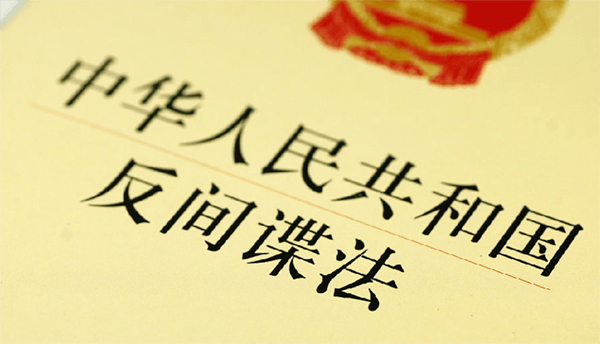 中华人民共和国
反间谍法